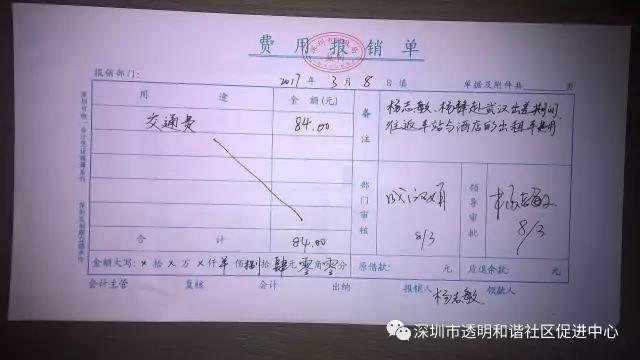 费用报销单
报销部门: 2017年3月8日填 单据及附件共 页
用途 金额(元) 备注 杨志敏、杨静赴武汉出差期间,
交通费 84.00 往返车站与酒店的出租车费用
部门审核 8/3 领导审批 杨志敏 8/3
合计 84.00
金额大写: × 拾 × 万 × 仟 佰 捌 拾 肆 元 零 角 零 分 原借款: 元 应退余款: 元
会计主管 复核 会计 出纳 报销人 杨志敏 领款人
深圳市透明和谐社区促进中心